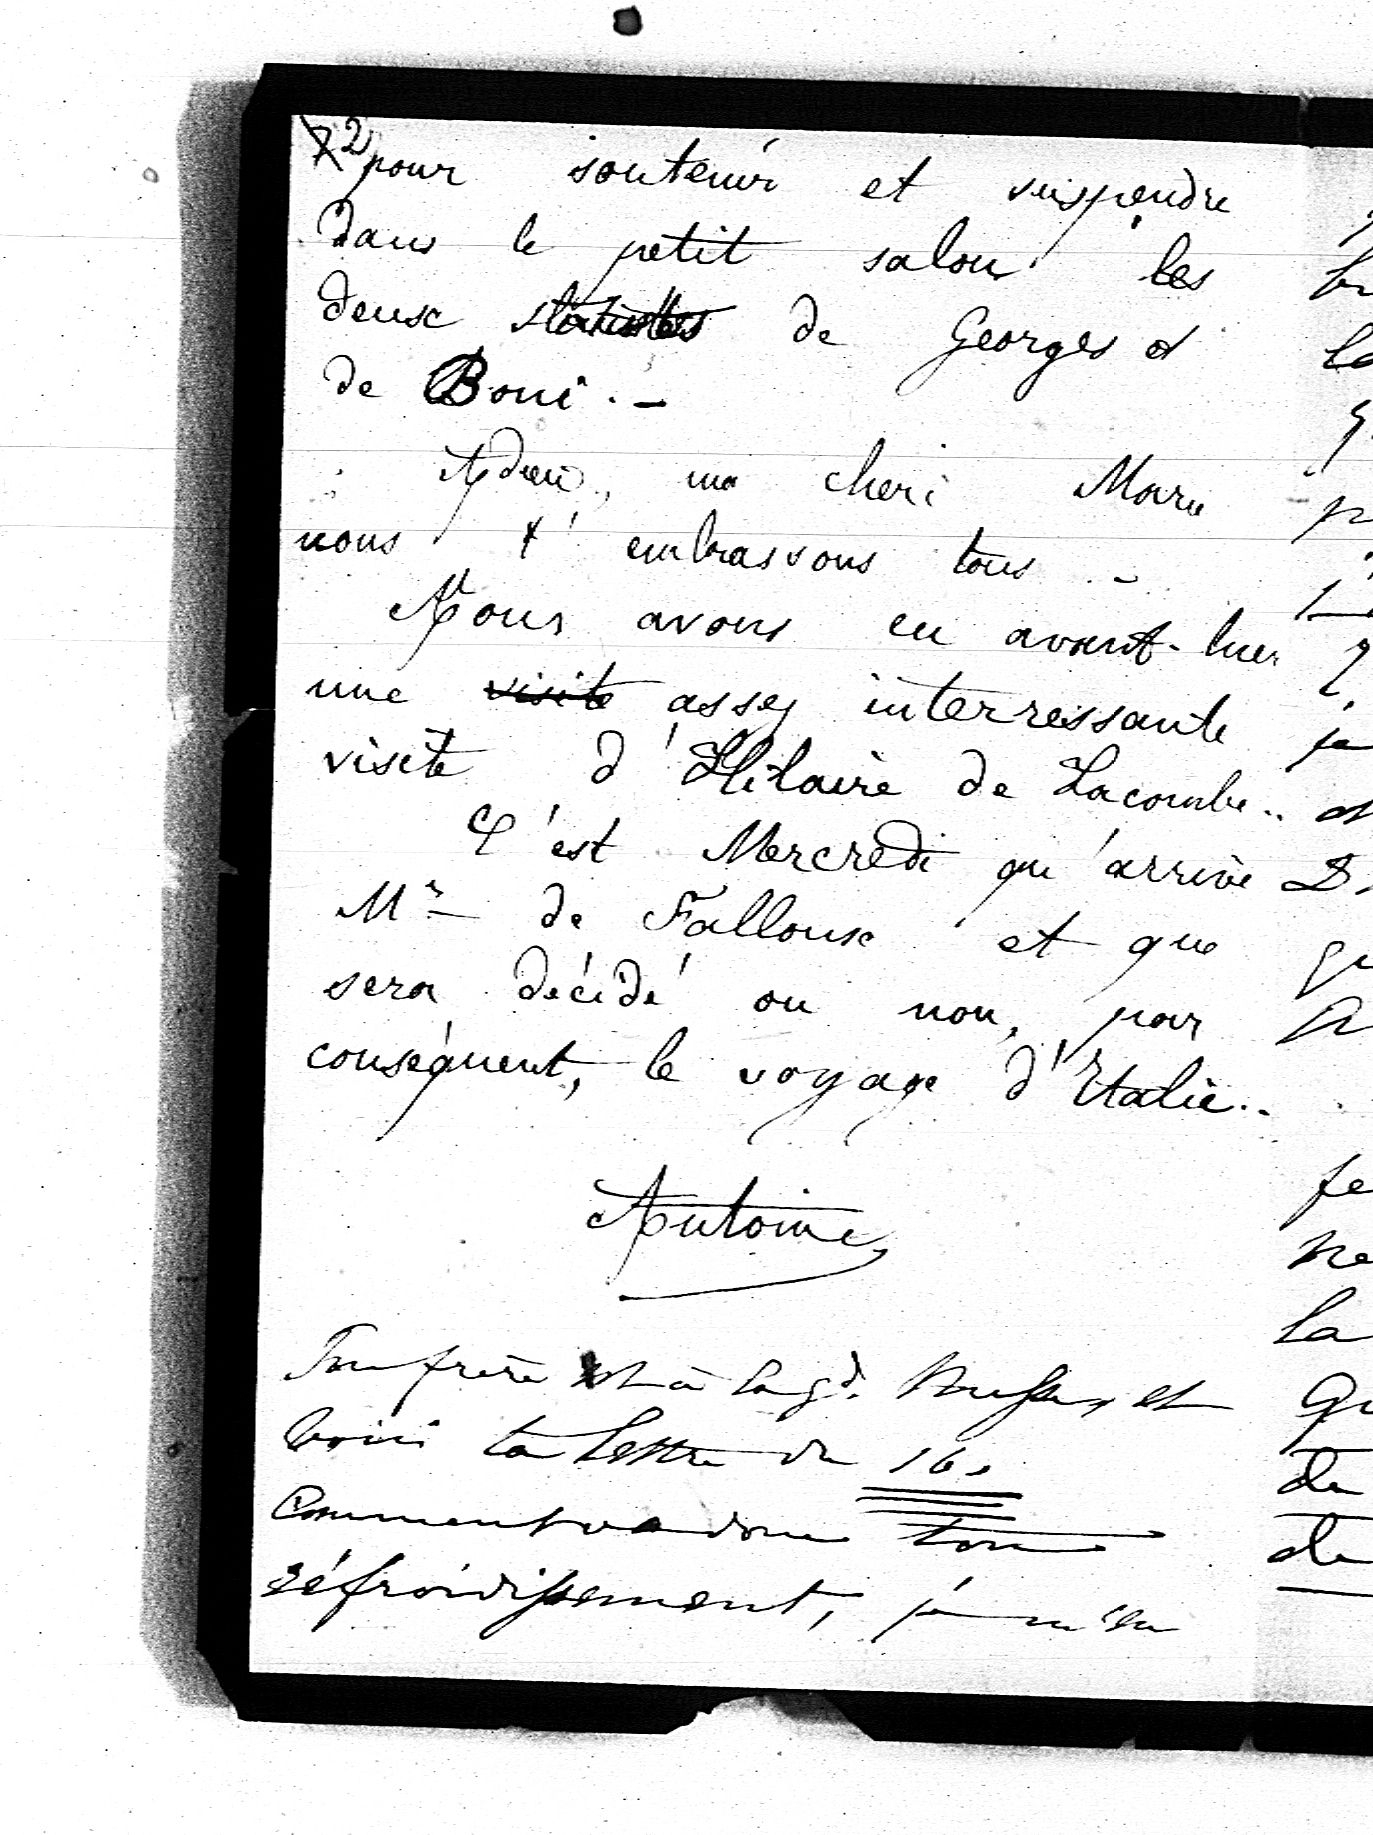 72
pour soutenir et suspendre
dans le petit salon les
deux statuettes de Georges et
de Boni. -
Adieu, ma cheri Marie
nous t'embrassons tous. -
Nous avons eu avant-hier
une visite assez interressante
visite d'Hilaire de Lacombe..
C'est Mercredi qu'arrive
Mr de Falloux et que
sera décidé ou non, par
conséquent, le voyage d'Italie..
Antoine
Ton frère est à la gd. Messe, et
voici ta lettre du 16.
Comment va donc ton
réfroidissement, je m'en